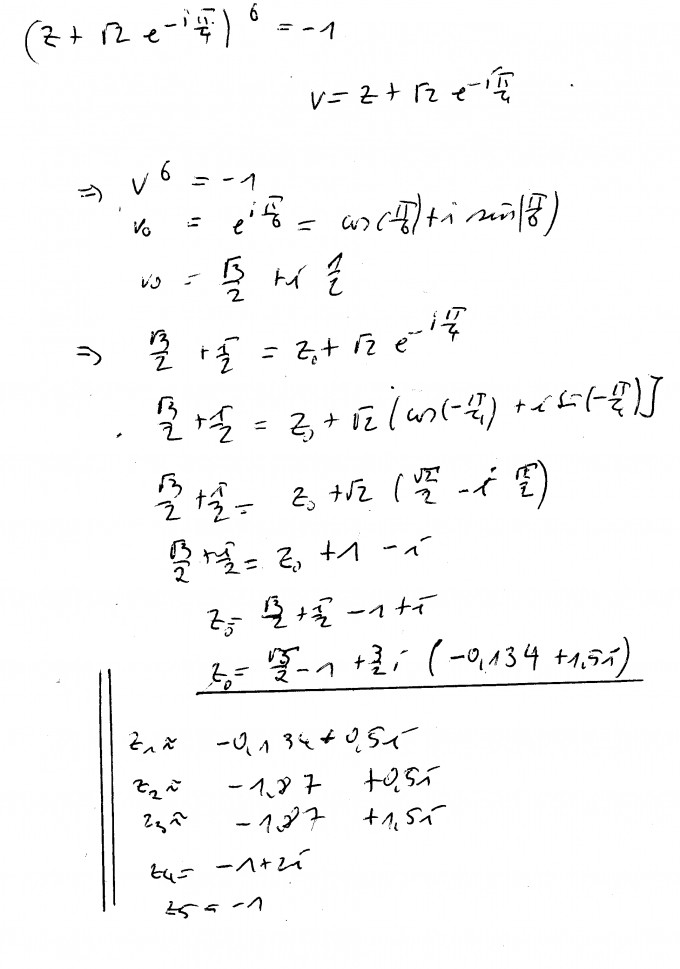 (z + √2 e^{-i π/4})^6 = -1
v = z + √2 e^{-i π/4}
⇒ v^6 = -1
v₀ = e^{i π/6} = cos(π/6) + i sin(π/6)
v₀ = √3/2 + i 1/2
⇒ √3/2 + i/2 = z₀ + √2 e^{-i π/4}
√3/2 + i/2 = z₀ + √2 (cos(-π/4) + i sin(-π/4)]
√3/2 + i/2 = z₀ + √2 (√2/2 - i √2/2)
√3/2 + i/2 = z₀ + 1 - i
z₀ = √3/2 + i/2 - 1 + i
z₀ = √3/2 - 1 + 3/2 i (-0,134 + 1,5i)
z₁ ≈ -0,134 + 0,5i
z₂ ≈ -1,87 + 0,5i
z₃ ≈ -1,87 + 1,5i
z₄ = -1 + 2i
z₅ = -1